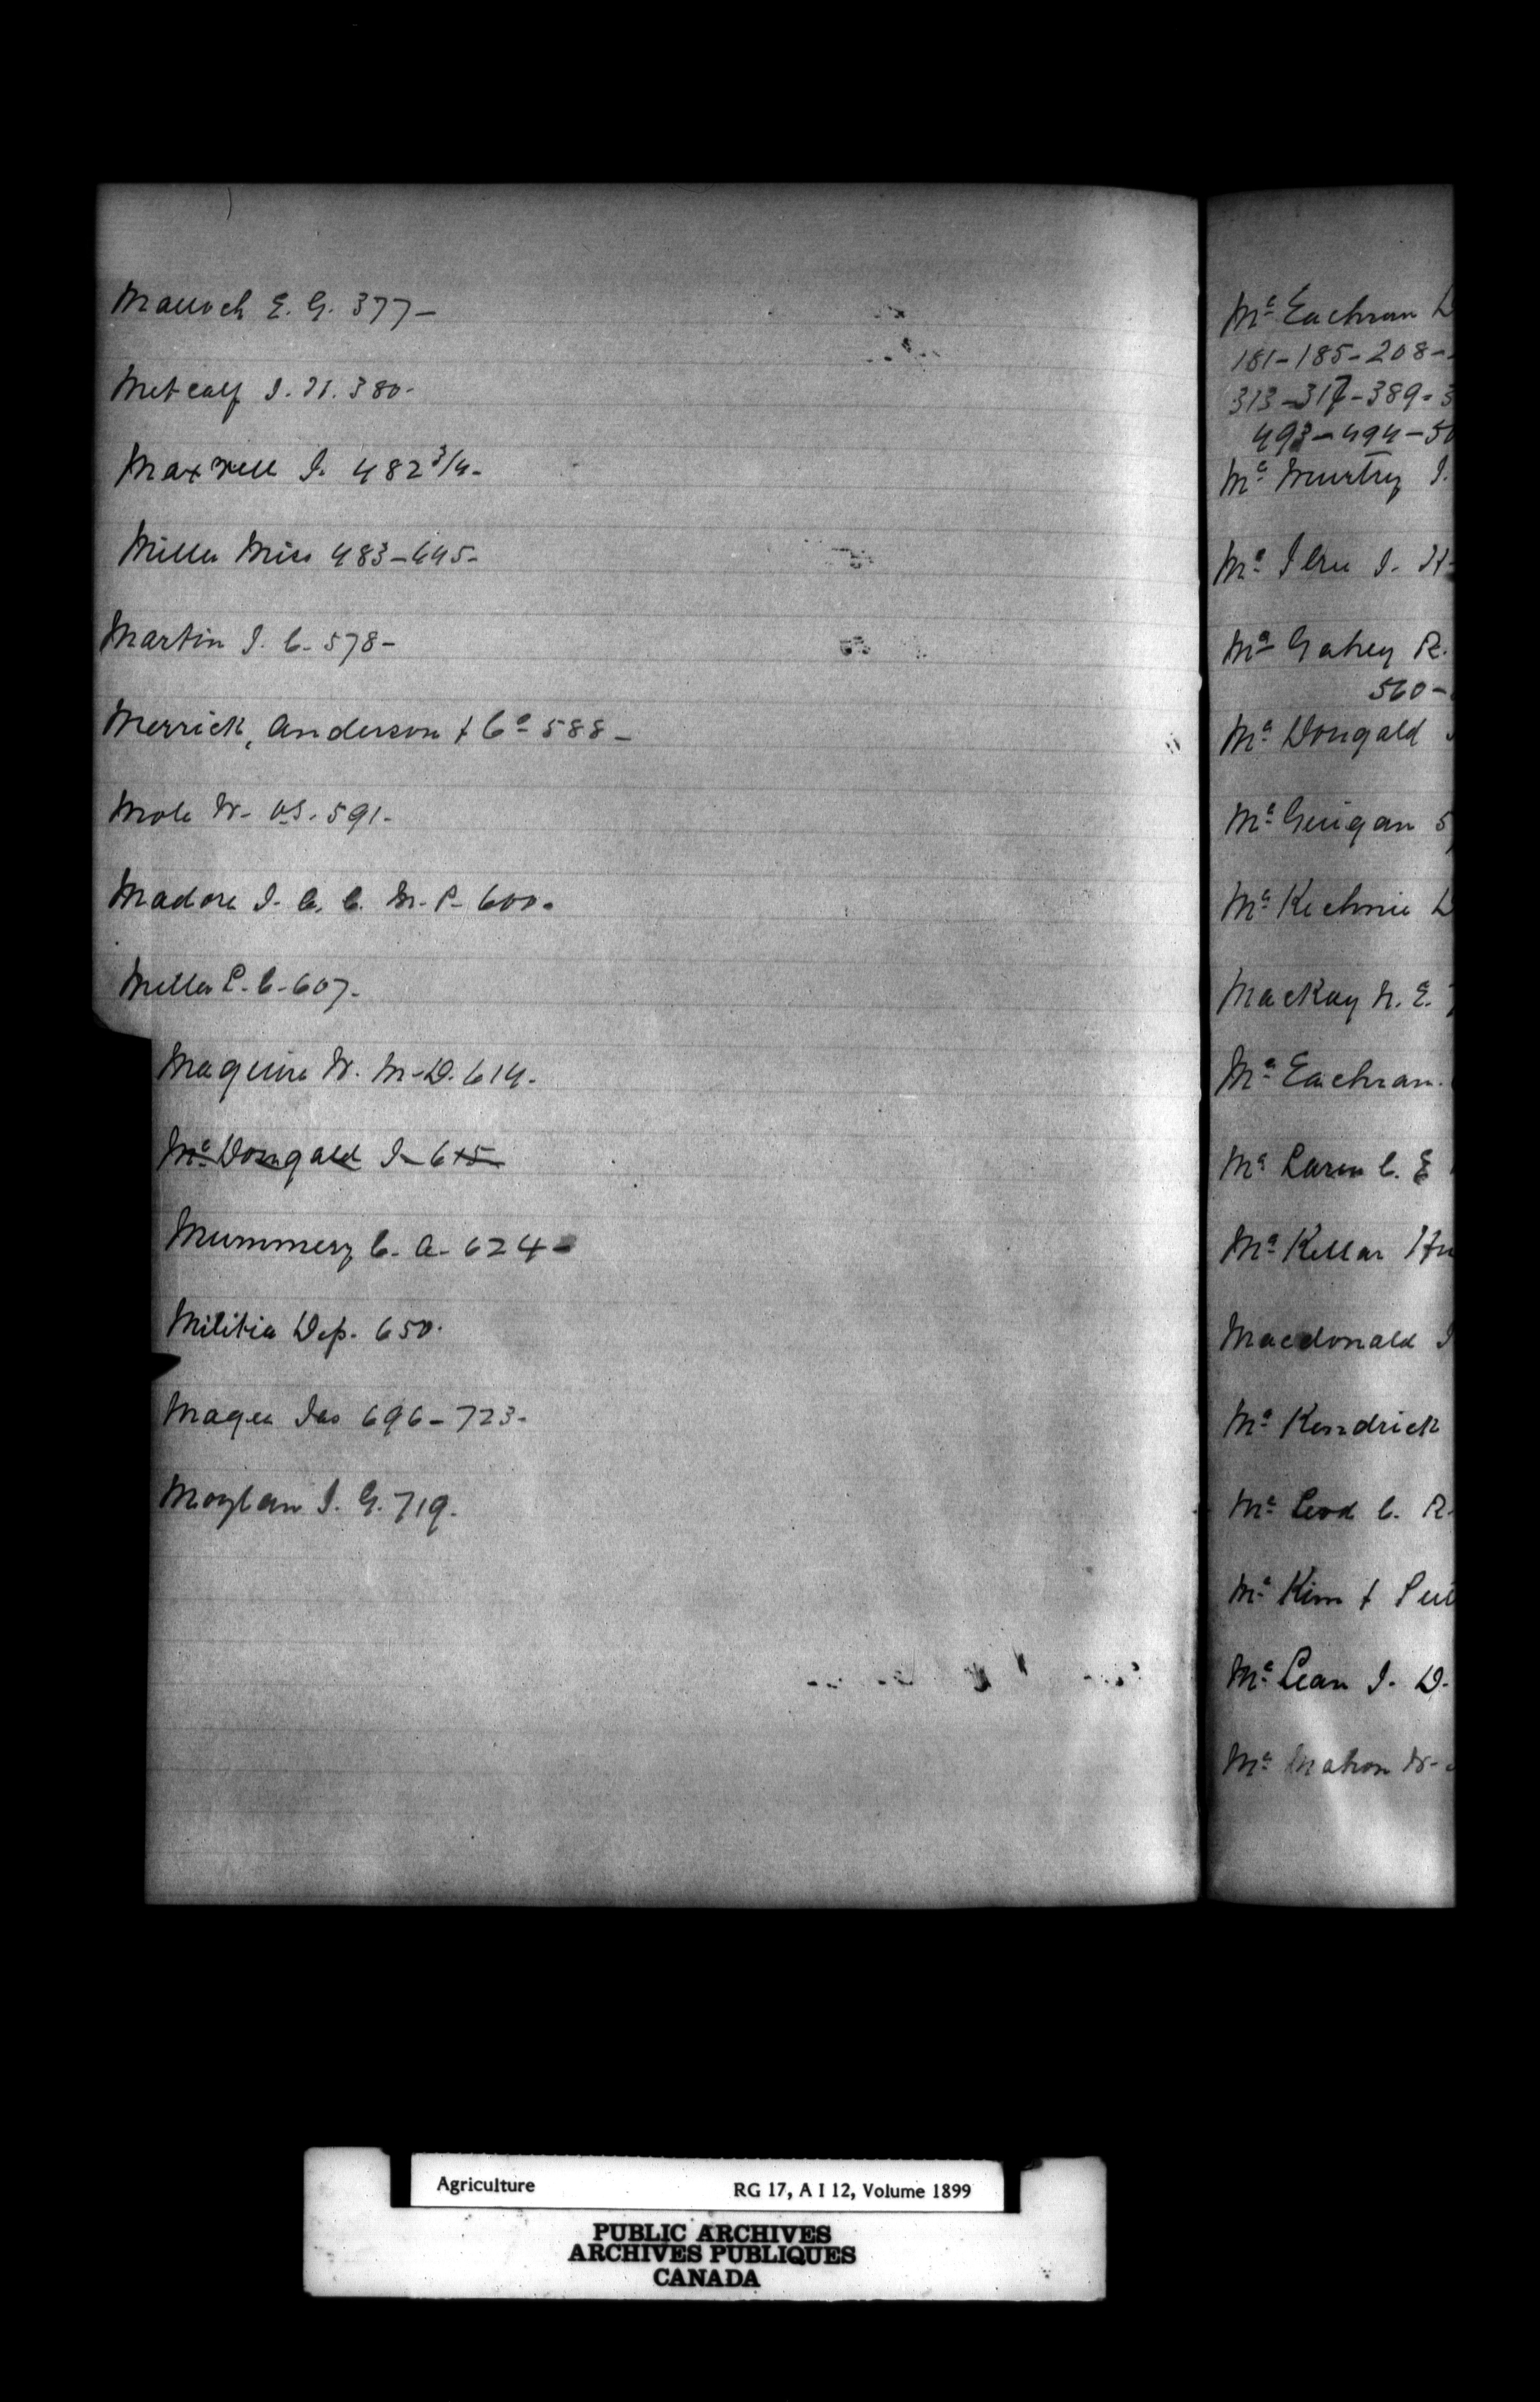 Malloch E. G. 377-
Metcalf J. H. 380-
Maxwell J. 482 3/4-
Miller Miss 483-445-
Martin J. C. 578-
Merrick, Anderson & Co 588-
Mole W. V.S. 591-
Madore J. A. C. M.P. 600-
Miller P. C. 607-
Maguire W. M.D. 614-
Mc Dougald J. 615
Mummery C. A. 624-
Militia Dep. 650.
Magee Jas 696-723-
Moylan J. G. 719.
Mc Eachran D
181-185-208-
313-317-389-3
493-494-50
Mc Murtry J.
Mc J. H
Mc Gahey R.
560-
Mc Dougald J
Mc Guigan 5
Mc Kechnie D
MacKay N. E. 7
Mc Eachran.
Mc Laren C. E
Mc Kellar Hu
Macdonald J
Mc Kendrick
Mc Leod C. R.
Mc Kim &
Mc Lean J. D.
Mc Mahon W.
Agriculture RG 17, A I 12, Volume 1899
PUBLIC ARCHIVES
ARCHIVES PUBLIQUES
CANADA